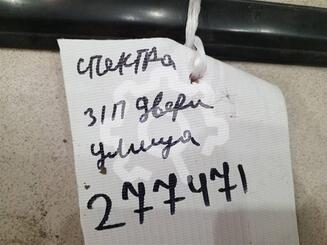 СПЕКТРА
З/П двери
улица
277471